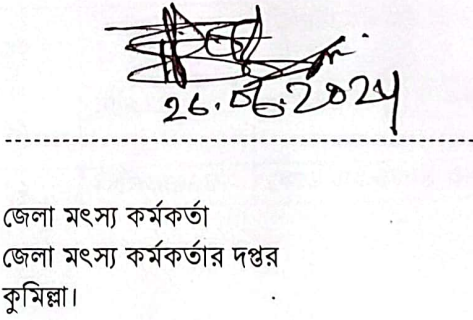 26.06.2024
জেলা মৎস্য কর্মকর্তা
জেলা মৎস্য কর্মকর্তার দপ্তর
কুমিল্লা।